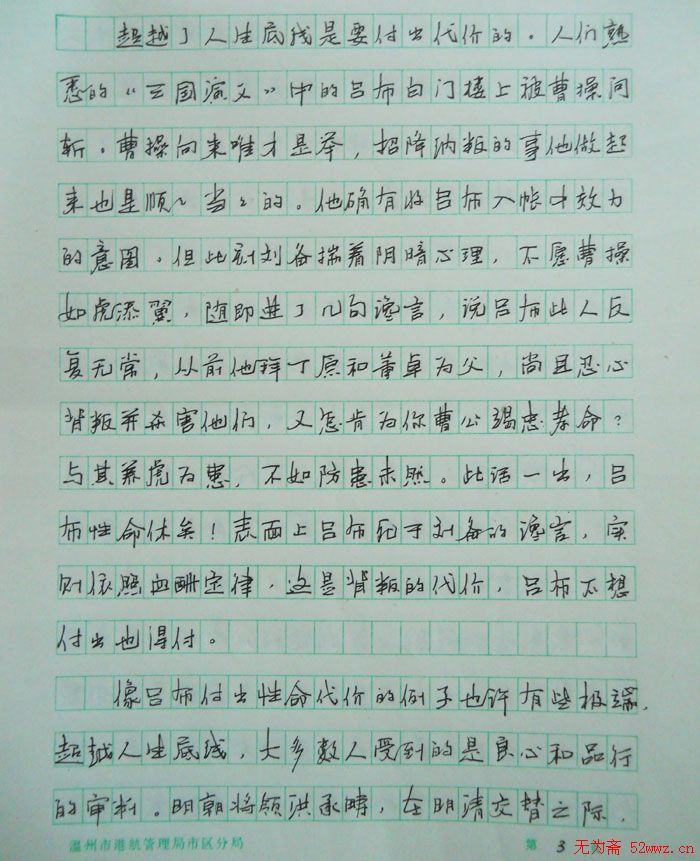 超越了人生底线是要付出代价的。人们熟
悉的“三国演义”中的吕布白门楼上被曹操问
斩。曹操向来唯才是举，招降纳叛的事他做起
来也是顺顺当当的。他确有收吕布入帐中效力
的意图。但此刻刘备揣着阴暗心理，不愿曹操
如虎添翼，随即进了几句谗言，说吕布此人反
复无常，以前他拜丁原和董卓为父，尚且忍心
背叛并杀害他们，又怎肯为你曹公竭忠孝命？
与其养虎为患，不如防患未然。此话一出，吕
布性命休矣！表面上吕布死于刘备的谗言，实
则依照血酬定律，这是背叛的代价，吕布不想
付出也得付。
像吕布付出性命代价的例子也许有些极端，
超越人生底线，大多数人受到的是良心和品行
的审判。明朝将领洪承畴，在明清交替之际，
温州市港航管理局市区分局
第 3
无为斋 52wwz.cn